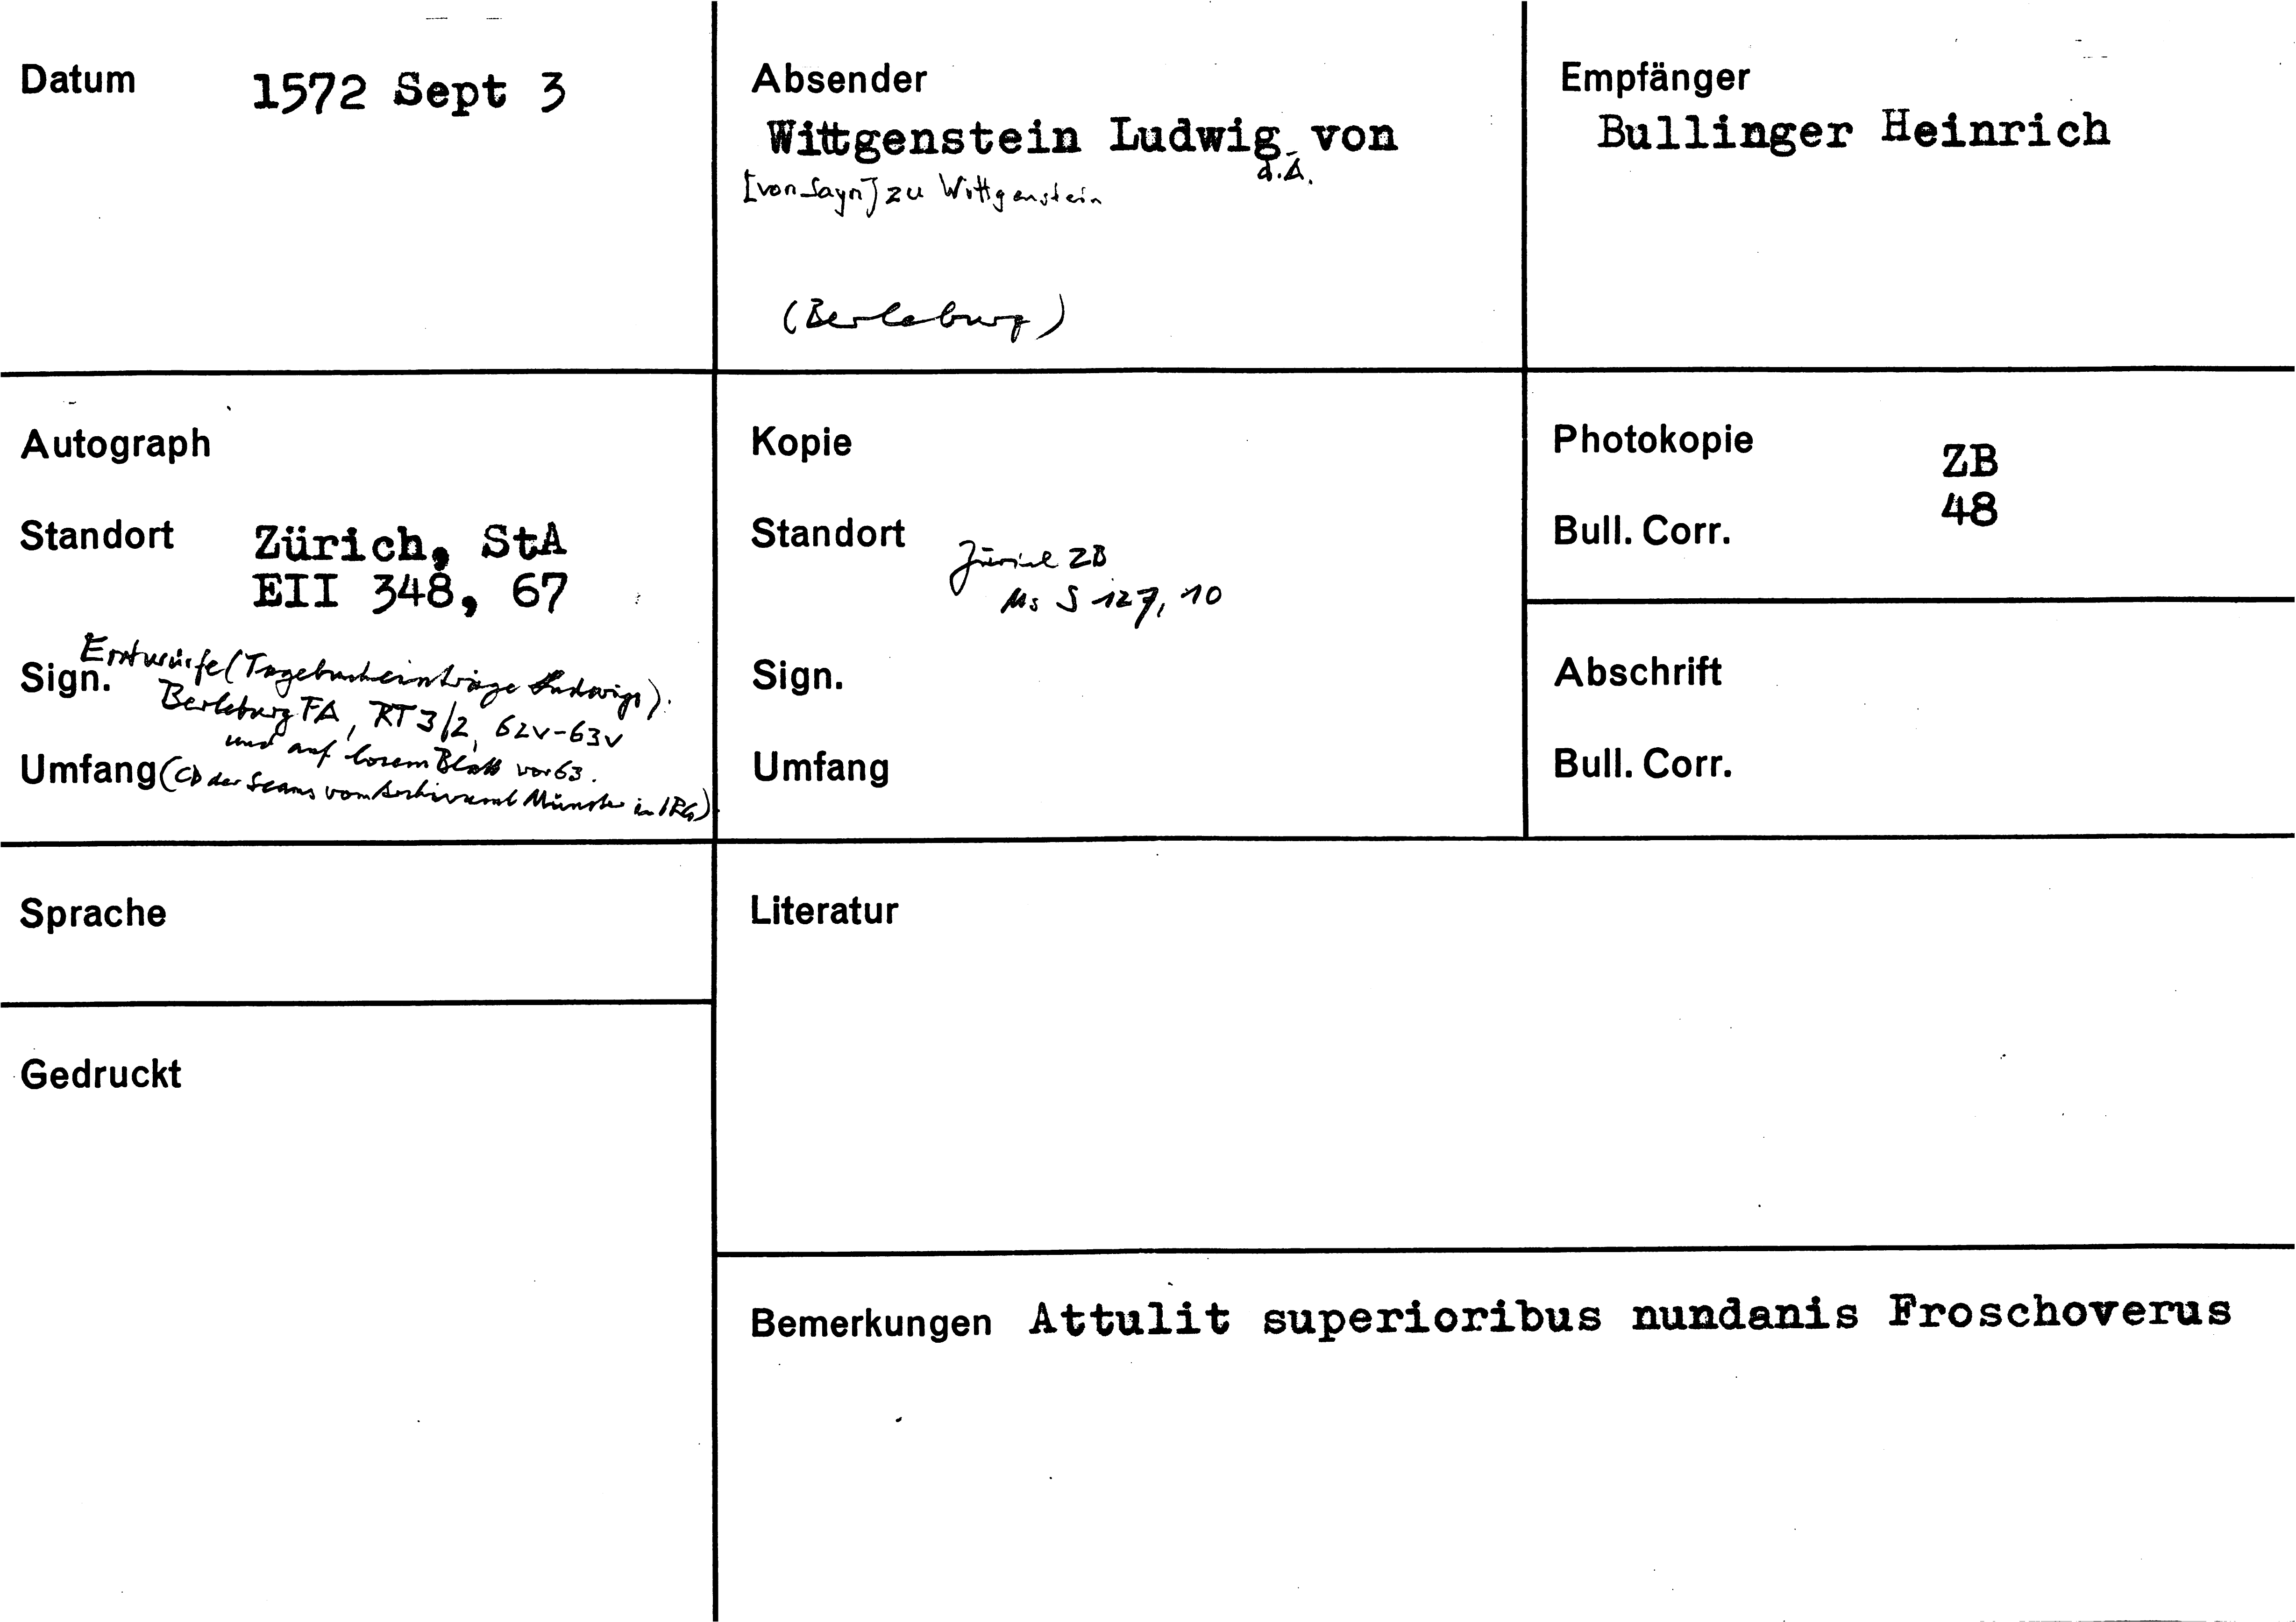 Datum 1572 Sept 3
Absender
Wittgenstein Ludwig von
d.Ä.
[von Sayn] zu Wittgenstein
(Berleburg)
Empfänger
Bullinger Heinrich
Autograph
Standort Zürich, StA
EII 348, 67
Sign. Entwürfe (Tagebucheinträge Ludwigs).
Berleburg FA, RT 3/2, 62v-63v
und auf losem Blatt vor 63.
Umfang (CD der Scans vom Archivamt Münster in IRG)
Kopie
Standort Zürich ZB
Ms S 127, 10
Sign.
Umfang
Photokopie ZB
Bull. Corr. 48
Abschrift
Bull. Corr.
Sprache
Gedruckt
Literatur
Bemerkungen Attulit superioribus nundanis Froschoverus